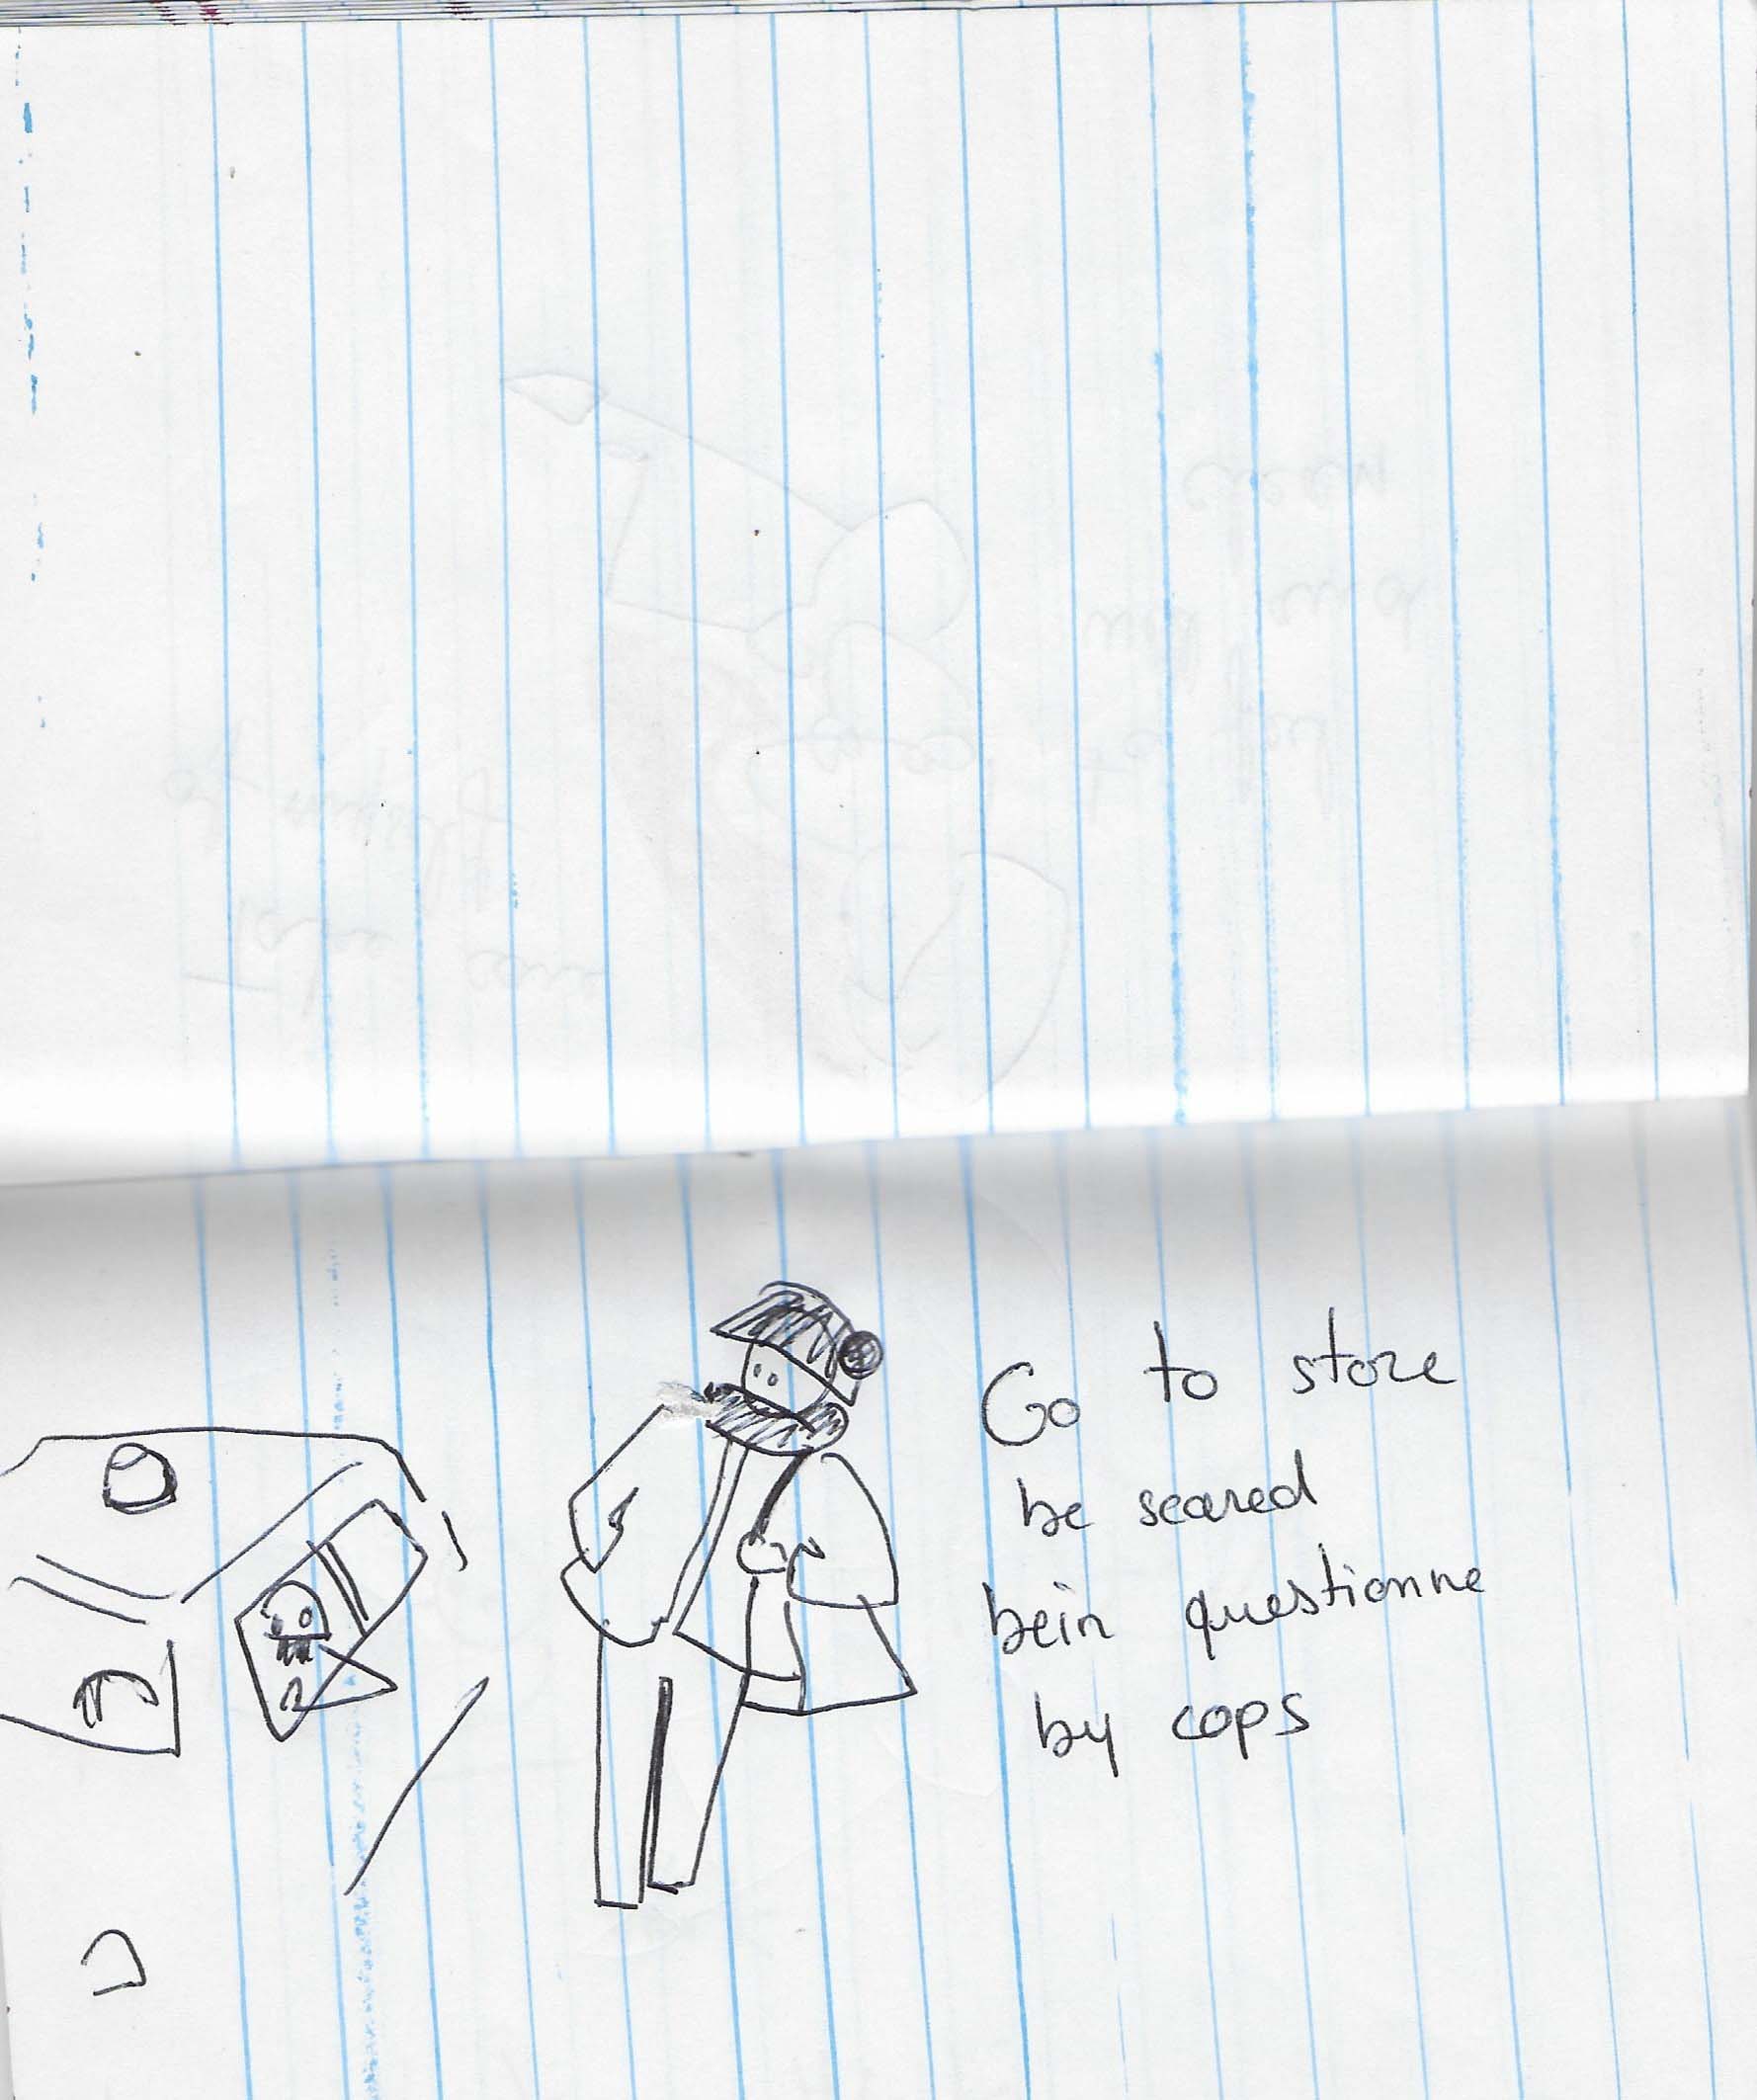 Go to store
be scared
bein questionne
by cops